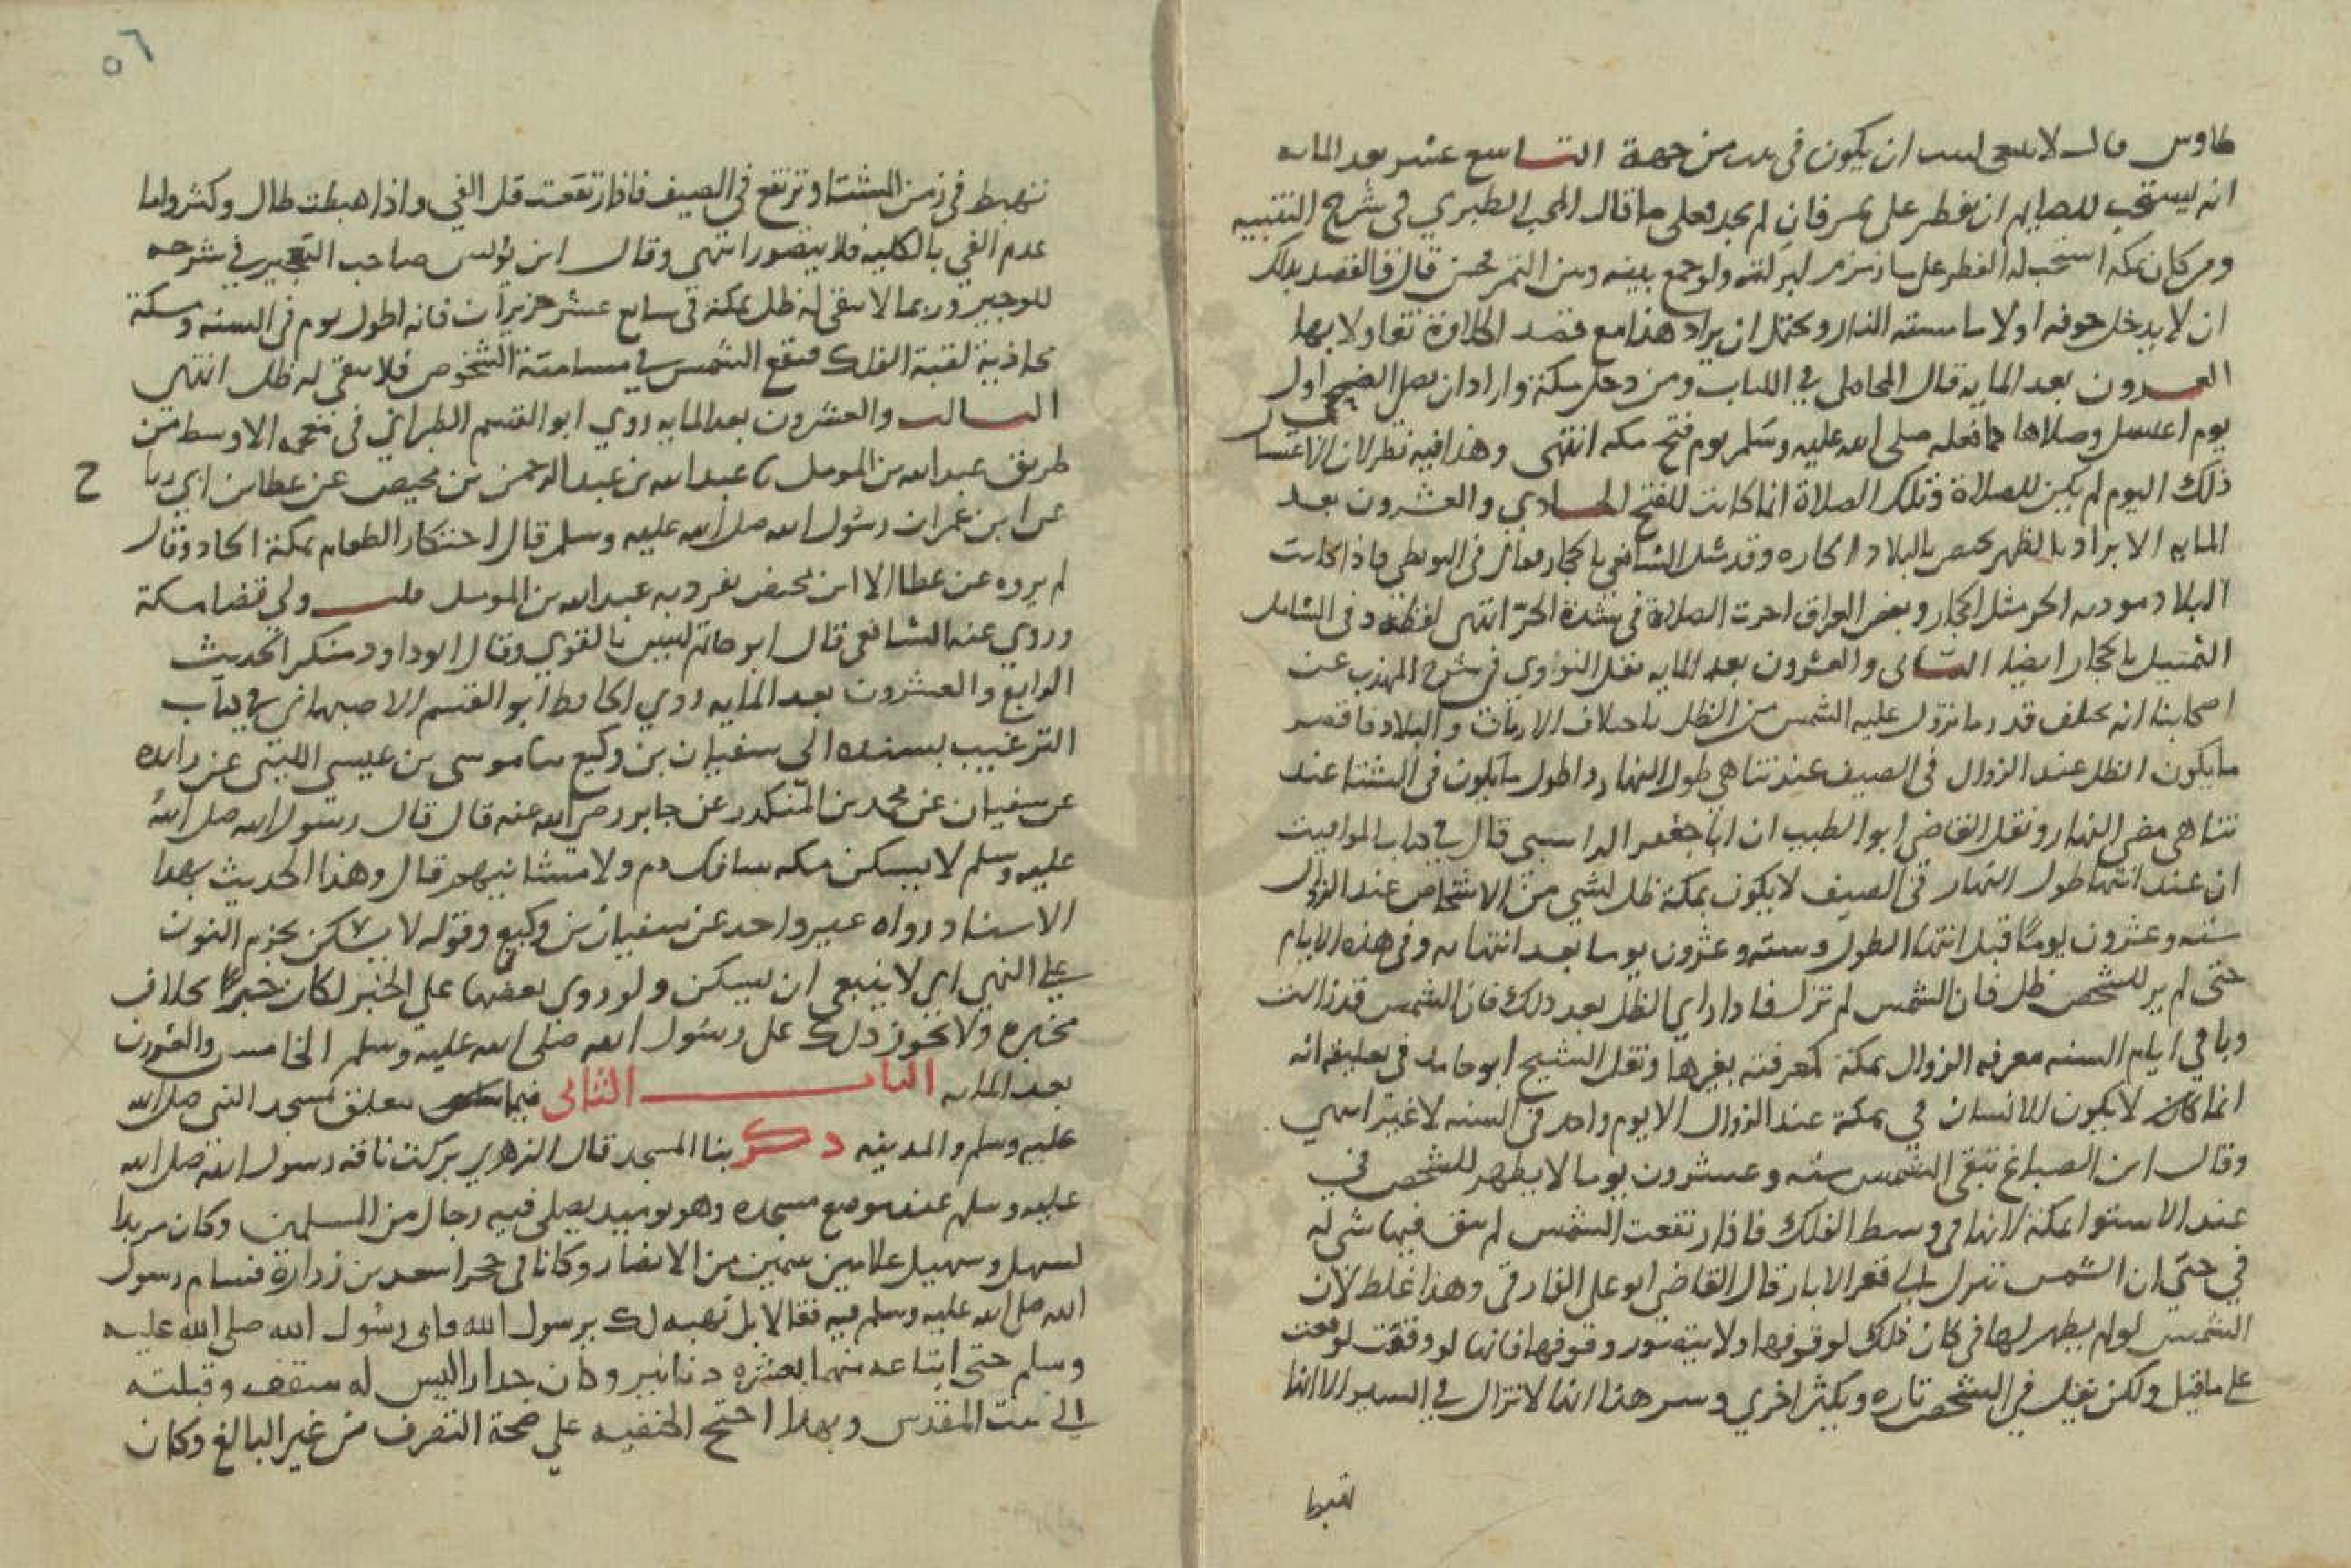 طاوس قال لا ينبغي لبيت ان يكون في بيت من جهة التاسع عشر بعد المايه
انه يستحب للصايم ان يفطر على تمر فان لم يجد فعلى ما قال المحب الطبري في شرح التنبيه
ومن كان بمكه استحب له الفطر على ما زمزم لبركته ولو جمع بينه وبين التمر فحسن قال فالقصد بذلك
ان لا يدخل جوفه اولا ما مسته النار ويحتمل ان يراد هذا مع قصد الحلاوة تفاولا بها
العشرون بعد المايه قال المحاملي في اللباب ومن دخل مكة واراد ان يصل الضحى اول
يوم اغتسل وصلاها كما فعله صلى الله عليه وسلم يوم فتح مكه انتهى وهذا فيه نظر لان الاغتسال
ذلك اليوم لم يكن للصلاة وتلك الصلاة انما كانت للفتح الحادي والعشرون بعد
المايه الابراد بالظهر يختص بالبلاد الحاره وقد مثل الشافعي بالحجاز فقال في البويطي فاذا كانت
البلاد موديه الحر مثل الحجاز وبعض العراق اخرت الصلاة في شدة الحر انتهى لفظه وفي الشامل
التمثيل بالحجاز ايضا الثاني والعشرون بعد المايه نقل النواوي في شرح المهذب عن
اصحابنا انه يختلف قدر ما تزول عليه الشمس من الظل باختلاف الازمان والبلاد فاقصر
ما يكون الظل عند الزوال في الصيف عند تناهي طول النهار واطول ما يكون في الشتا عند
تناهي قصر النهار ونقل القاضي ابو الطيب ان ابا جعفر الراسبي قال في كتاب المواقيت
ان عند انتها طول النهار في الصيف لا يكون بمكة ظل لشي من الاشخاص عند الزوال
سته وعشرون يومًا قبل انتها الطول وسته وعشرون يوما بعد انتهايه وفي هذه الايام
حتى لم ير للشخص ظل فان الشمس لم تزل فاذا راي الظل بعد ذلك فان الشمس قد زالت
وباقي ايام السنه معرفه الزوال بمكة كمعرفته بغيرها ونقل الشيخ ابو حامد في تعليقه انه
انما كان لا يكون للانسان في بمكة عند الزوال الا يوم واحد في السنه لا غير انتهي
وقال ابن الصباغ تبقى الشمس سته وعشرون يوما لا يظهر للشخص في
عند الاستوا بمكة لانها في وسط الفلك فاذا ارتفعت الشمس لم يبق فيها شي له
في حتي ان الشمس تنزل الي قعر الابار قال القاضي ابو علي الفارقي وهذا غلط لان
الشمس لو لم يظهر لها في كان ذلك لوقوفها ولا يتصور وقوفها فانها لو وقفت لوقعت
على ما قيل ولكن يقل في الشخص تاره ويكثر اخري وسر هذا انها لا تزال في السير الا انها
تهبط
٥٦
تنهبط في زمن الشتا وترتفع في الصيف فاذا ارتفعت قل الفي واذا هبطت طال وكثر واما
عدم الفي بالكليه فلا يتصور انتهى وقال ابن يونس صاحب التعجيز في شرحه
للوجيز وربما لا يبقى له ظل بمكة في سابع عشر حزيران فانه اطول يوم في السنه ومكة
محاذية لقبة الفلك فتقع الشمس في مسامتة الشخوص فلا يبقى له ظل انتهى
الثالث والعشرون بعد المايه روي ابو القسم الطبراني في معجمه الاوسط من
طريق عبد الله بن المومل نا عبد الله بن عبد الرحمن بن محيصن عن عطا بن ابي ربا ح
عن ابن عمر ان رسول الله صلى الله عليه وسلم قال احتكار الطعام بمكة الحاد وقال
لم يروه عن عطا الا ابن محيصن تفرد به عبد الله بن المومل قلت ولي قضا مكة
وروي عنه الشافعي قال ابو حاتم ليس بالقوي وقال ابو داود منكر الحديث
الرابع والعشرون بعد المايه روي الحافظ ابو القسم الاصبهاني في كتاب
الترغيب بسنده الى سفيان بن وكيع نا موسى بن عيسى الليثي عن زايده
عن سفيان عن محمد بن المنكدر عن جابر رضي الله عنه قال قال رسول الله صلى الله
عليه وسلم لا يسكن مكه سافك دم ولا مشا بنميم قال وهذا الحديث بهذا
الاسناد رواه غير واحد عن سفيان بن وكيع وقوله لا يسكن بجزم النون
على النهي اي لا ينبغي ان يسكن ولو روي بعضها على الخبر لكان خبرًا بخلاف
مخبره ولا يجوز ذلك على رسول الله صلى الله عليه وسلم الخامس والعشرون
بعد المايه الباب الثاني فيما يتعلق بمسجد النبي صلى الله
عليه وسلم والمدينه ذكر بنا المسجد قال الزهري بركت ناقه رسول الله صلى الله
عليه وسلم عند موضع مسجده وهو يوميذ يصلي فيه رجال من المسلمين وكان مربدا
لسهل وسهيل غلامين يتيمين من الانصار وكانا في حجر اسعد بن زرارة فساوم رسول
الله صلى الله عليه وسلم فيه فقالا بل نهبه لك يرسول الله فابى رسول الله صلى الله عليه
وسلم حتى ابتاعه منهما بعشره دنانير وكان جدارا ليس له سقف وقبلته
الى بيت المقدس وبهذا احتج الحنفيه على صحة التصرف من غير البالغ وكان